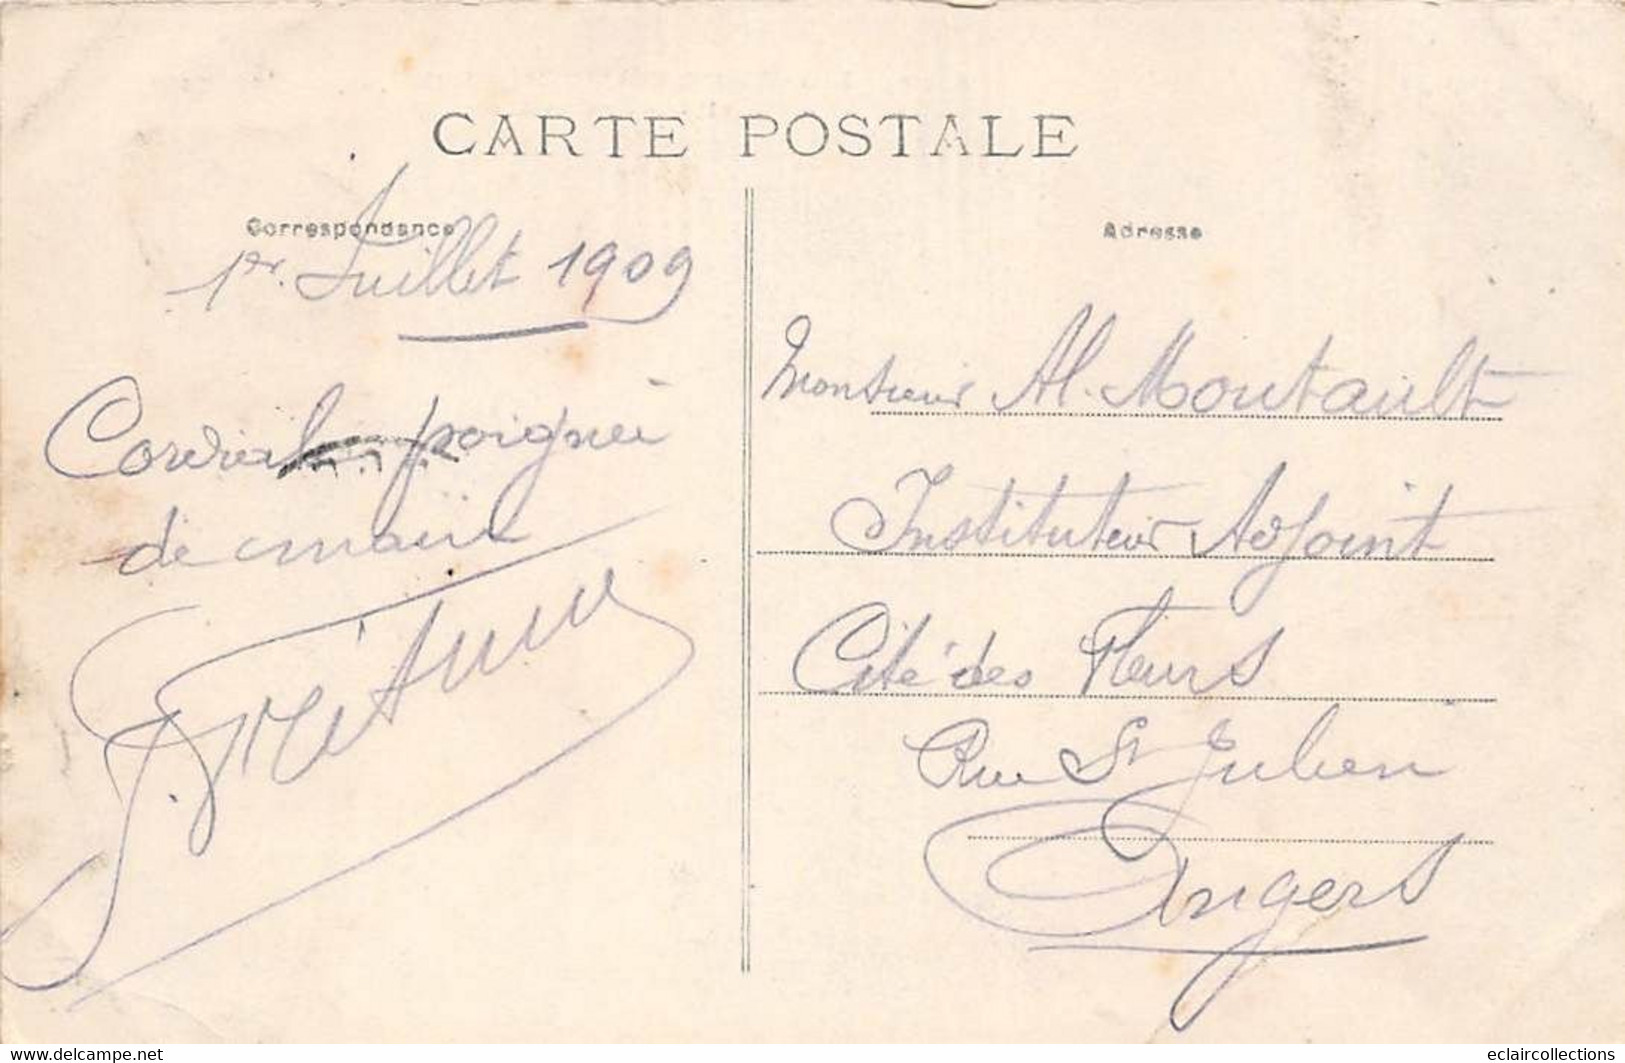 CARTE POSTALE
Correspondance
1er Juillet 1909
Cordiale poignée
de main
Adresse
Monsieur Al. Moutault
Instituteur Adjoint
Cité des Fleurs
Rue St Julien
Angers
eclaircollections
www.delcampe.net